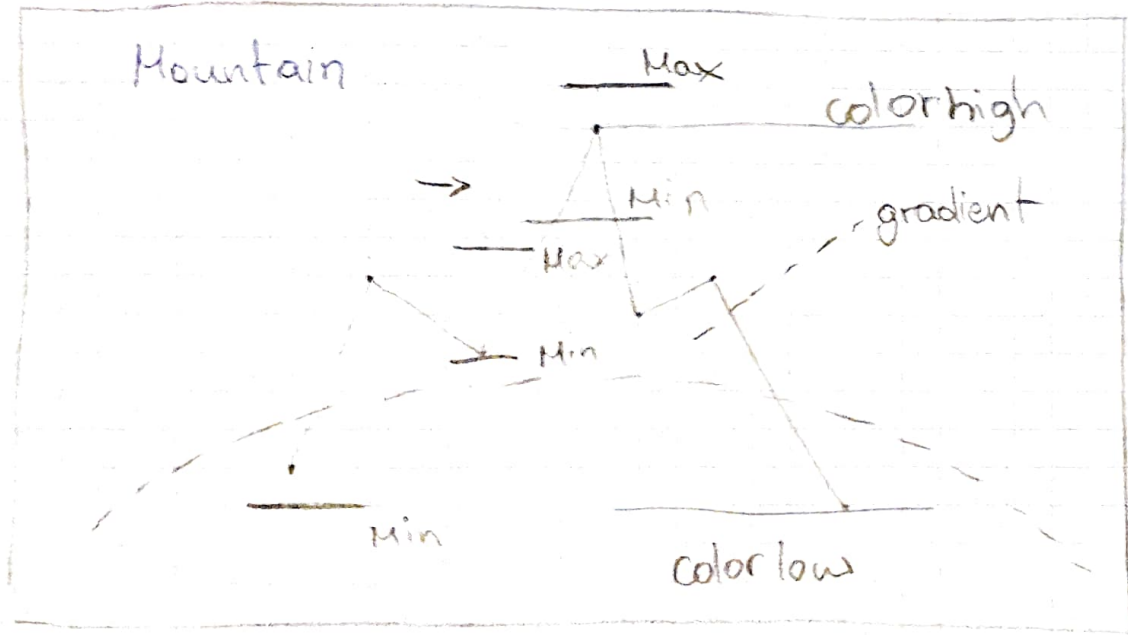 Mountain
Max
color high
Min
gradient
Max
Min
Min
color low